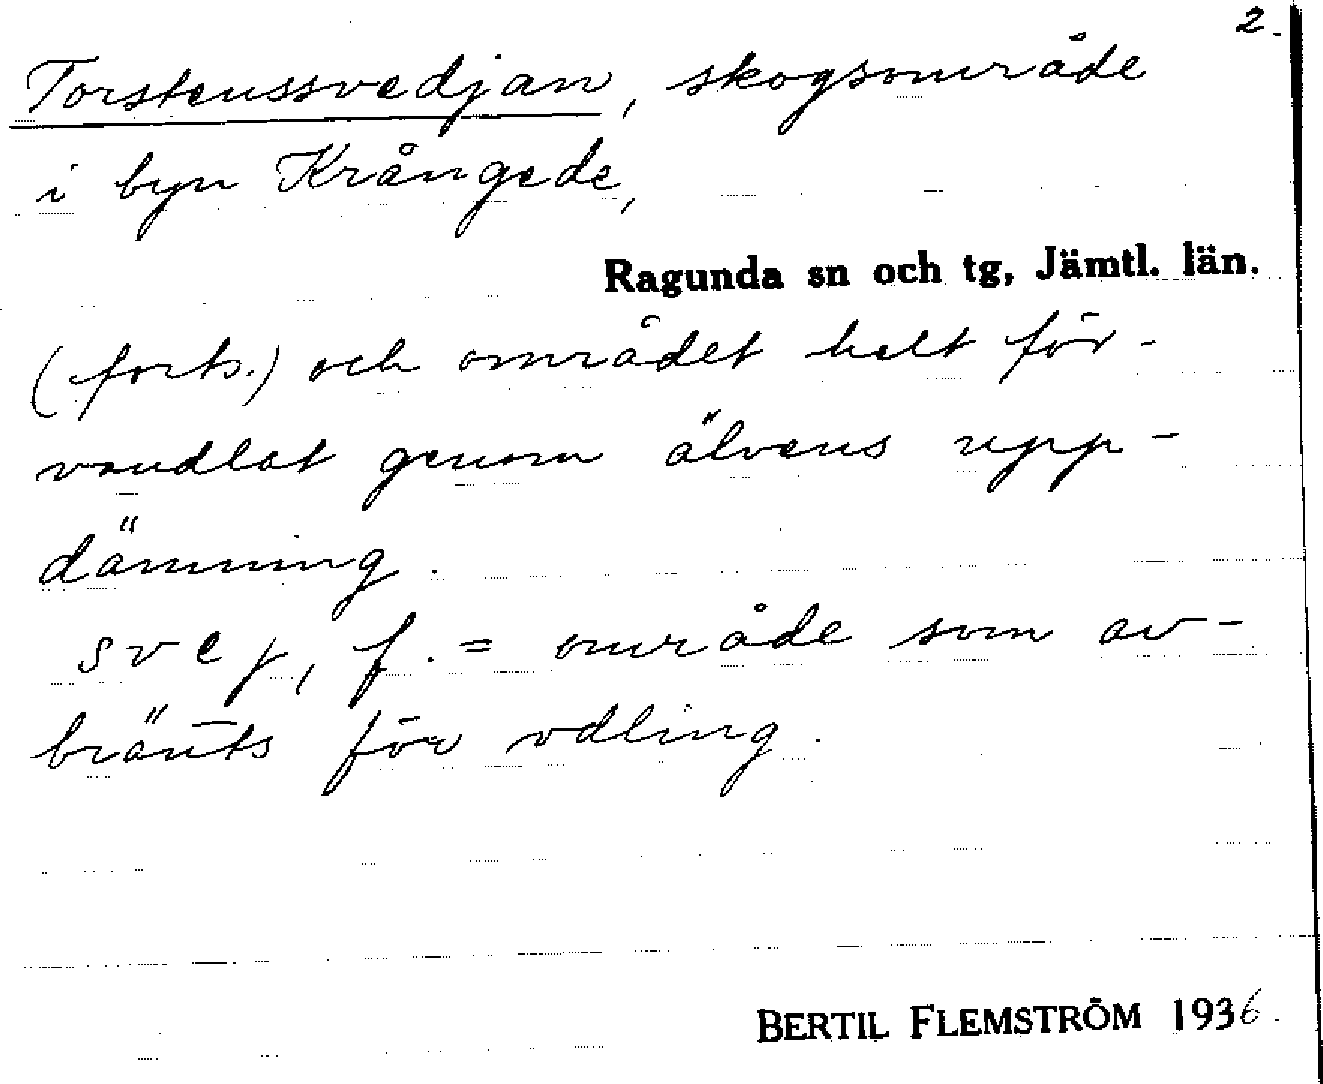 2.
Torstenssvedjan, skogsområde
i byn Krångede,
Ragunda sn och tg, Jämtl. län.
(forts.) och området helt för-
vandlat genom älvens upp-
dämning.
svej, f. = område som av-
bränts för odling.
BERTIL FLEMSTRÖM 1936.